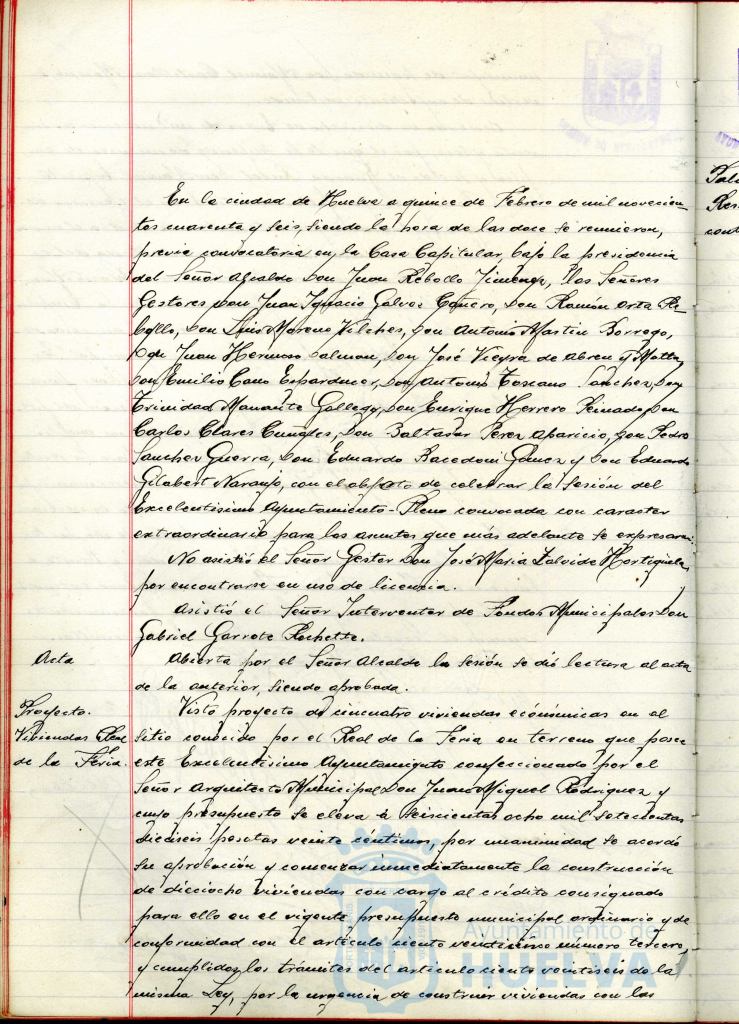 En la ciudad de Huelva a quince de Febrero de mil novecien-
tos cuarenta y seis, siendo la hora de las doce se reunieron,
previa convocatoria en la Casa Capitular, bajo la presidencia
del Señor Alcalde Don Juan Rebollo Jimenez, los Señores
Gestores Don Juan Ignacio Galvez Cañero, Don Ramón Orta Re-
bollo, Don Luis Moreno Vilches, Don Antonio Martin Borrego,
Don Juan Hermoso Salmon, Don José Vieyra de Abreu y Motta,
Don Emilio Cano Don Antonio Toscano Sanchez, Don
Trinidad Gallego, Don Enrique Herrero Peinado, Don
Carlos Clares Don Baltasar Perez Aparicio, Don Pedro
Sanchez Guerra, Don Eduardo Racedoni Gamez y Don Eduardo
Gilabert Naranjo, con el objeto de celebrar la Sesión del
Excelentisimo Ayuntamiento-Pleno convocada con caracter
extraordinario para los asuntos que más adelante se expresaran.
No asistió el Señor Gestor Don José Maria Hortigüela
por encontrarse en uso de licencia.
Asistió el Señor Interventor de Fondos Municipales Don
Gabriel Garrote Rochette.
Acta
Abierta por el Señor Alcalde la Sesión se dió lectura al acta
de la anterior, siendo aprobada.
Proyecto.
Viviendas Real
de la Feria.
Visto proyecto de viviendas económicas en el
sitio conocido por el Real de la Feria en terreno que posee
este Excelentisimo Ayuntamiento confeccionado por el
Señor Arquitecto Municipal Don Juan Miguel Rodriguez y
cuyo presupuesto se eleva a seiscientas ocho mil setecientas
dieciseis pesetas veinte céntimos, por unanimidad se acordó
su aprobación y comenzar inmediatamente la construcción
de dieciocho viviendas con cargo al crédito consignado
para ello en el vigente presupuesto municipal ordinario y de
conformidad con el articulo ciento numero tercero
y cumplidos los trámites del articulo ciento veintiseis de la
misma Ley, por la urgencia de construir viviendas con las
Ayuntamiento de
HUELVA